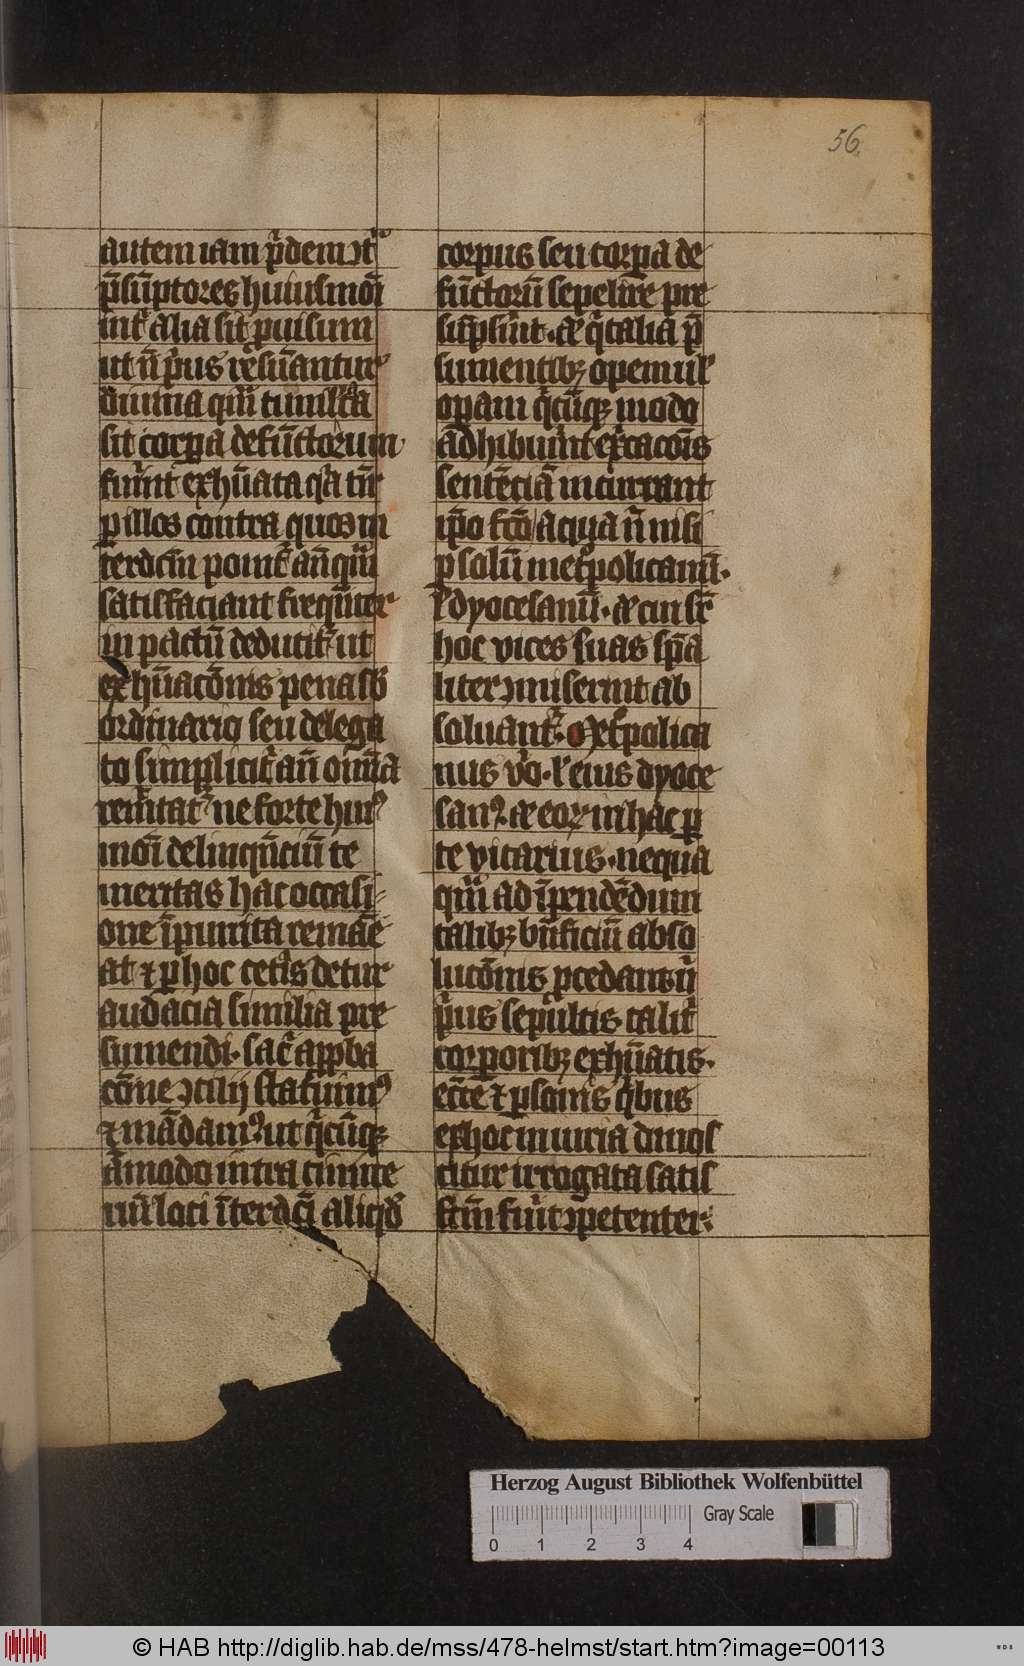 56.
autem iam p̄dem ꝯtͣ
p̄sūptores huiusmōi
int̄ alia sit puisum
ut n̄ p̄us res̄uantur
diuina qm̄
sit corpa defūctorum
fūint exhūata
ꝑ illos contra quos in
an̄ qm̄
satisfaciant freqūter
in pactū deducit̄ ut
exhūacōnis pena
ordinario seu delega
to simplicit̄
ne forte huiꝰ
mōi delinqūciū te
meritas hac occasi
one īpunita remāe
at ⁊ ꝑ hoc cetīs detur
audacia similia pre
sumendi. sac̄ appba
cōne ꝯcilij statuimꝰ
⁊ mādamꝰ ut q̄cūqꝫ
āmodo intra cimite
rium loci īterdc̄i aliqd̄
corpus seu corpa de
fūctorū sepelire pre
sūpsīnt. ac q̄ talia p̄
sumentibꝫ opem ul̄
operam q̄cūqꝫ modo
adhibuīnt
sentēciā incurrant
ip̄o fc̄o a qua n̄ nisi
ꝑ solū metͦpolitanū.
l̄ dyocesanū. ac cui
hoc vices suas sp̄a
liter ꝯmiserint ab
soluant̄. Metͦpolita
nus v̄o. l̄ eius dyoce
sanꝰ. ac eoꝝ in hac ꝑ
te vicarius. nequa
qm̄ ad īpendēdum
talibꝫ bn̄ficiū abso
lucōnis pcedant
p̄us sepultis talit̄
corporibꝫ exhūatis.
ecc̄e ⁊ ꝑsonis q̄bus
ex hoc iniuria dinos
citur irrogata satis
fc̄m fūit ꝯpetenter.
Herzog August Bibliothek Wolfenbüttel
Gray Scale
0 1 2 3 4
© HAB http://diglib.hab.de/mss/478-helmst/start.htm?image=00113
WDB